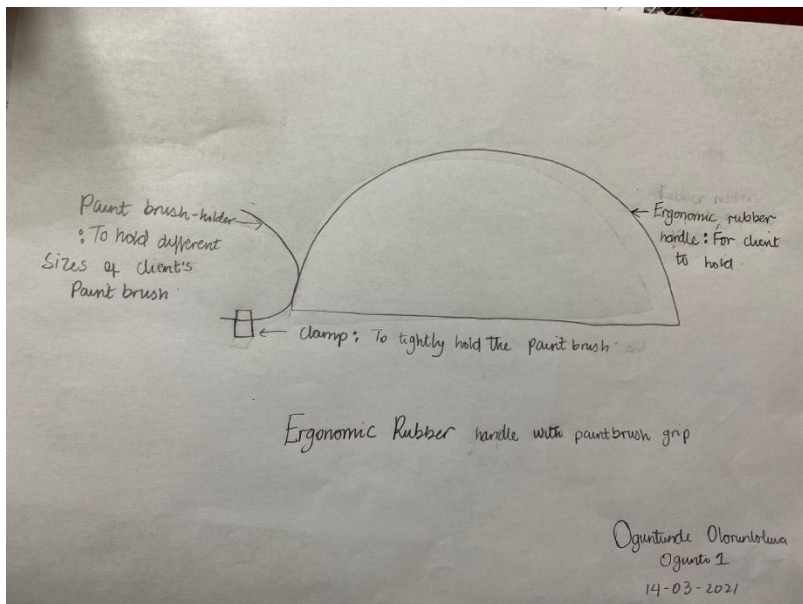 Paint brush-holder
: To hold different
Sizes of client's
Paint brush
Ergonomic rubber
handle : For client
to hold.
clamp : To tightly hold the paint brush
Ergonomic Rubber handle with paintbrush grip
Oguntunde Olorunloluwa
Ogunto 1
14-03-2021